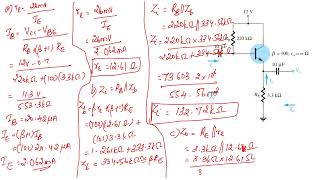 a) re = 26mV
IE
IB = VCC - VBE
RB + (β+1)RE
= 12V - 0.7
220kΩ + (101)(3.3kΩ)
= 11.3V
553.3kΩ
IB = 20.42 μA
IE = (β+1)IB
= (101) 20.42 μA
IE = 2.062mA
re = 26mV
IE
= 26mV
2.062mA
re = 12.61 Ω
b) Zi = RB||Zb
Zb = βre + (β+1)RE
= (100)(12.61Ω) +
(101) 3.3kΩ
= 1.261kΩ + 333.3kΩ
Zb = 334.56kΩ ≅ βRE
Zi = RB||Zb
= 220kΩ || 334.56kΩ
= 220kΩ × 334.56kΩ
220kΩ + 334.56kΩ
= 73603.2 × 10
554.56 × 10
Zi = 132.72kΩ
c) Zo = RE || re
= 3.3kΩ || 12.61Ω
= 3.3kΩ × 12.61Ω
3
12 V
220 kΩ
β = 100, ro = ∞ Ω
10 μF
Vo
3.3 kΩ
Zo